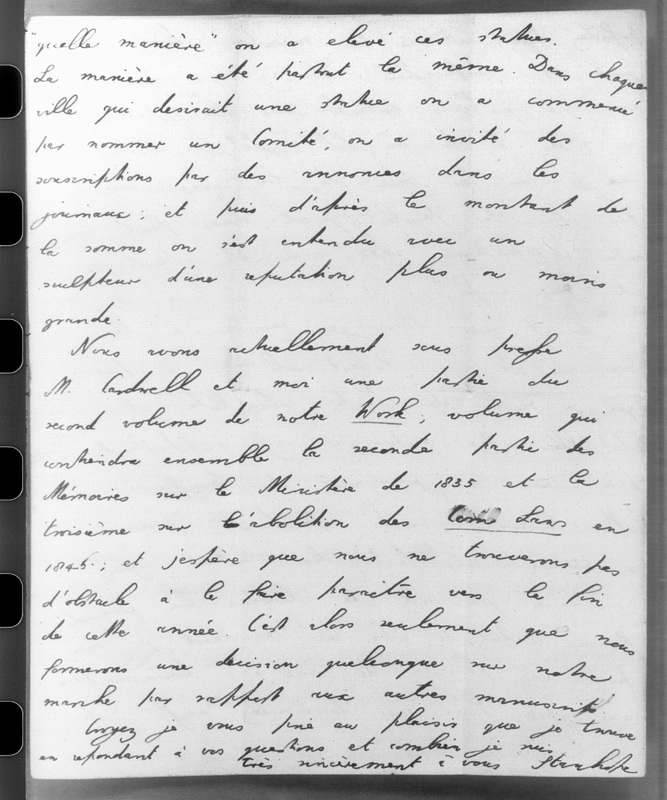 "quelle manière" on a elevé ces statues.
La manière a été partout la même. Dans chaque
ville qui desirait une statue on a commencé
par nommer un Comité, on a invité des
souscriptions par des annonces dans les
journaux; et puis d'après le montant de
la somme on s'est entendu avec un
sculpteur d'une reputation plus ou moins
grande.
Nous avons actuellement sous presse
M. Cardwell et moi une partie du
second volume de notre Work, volume qui
contiendra ensemble la seconde partie des
Mémoires sur le Ministère de 1835 et la
troisième sur l'abolition des Corn Laws en
1846; et j'espère que nous ne trouverons pas
d'obstacle à le faire paraitre vers la fin
de cette année. C'est alors seulement que nous
formerons une decision quelconque sur notre
marche par rapport aux autres manuscrits
Croyez je vous prie au plaisir que je trouve
en repondant à vos questions et combien je suis
très sincèrement à vous Stanhope